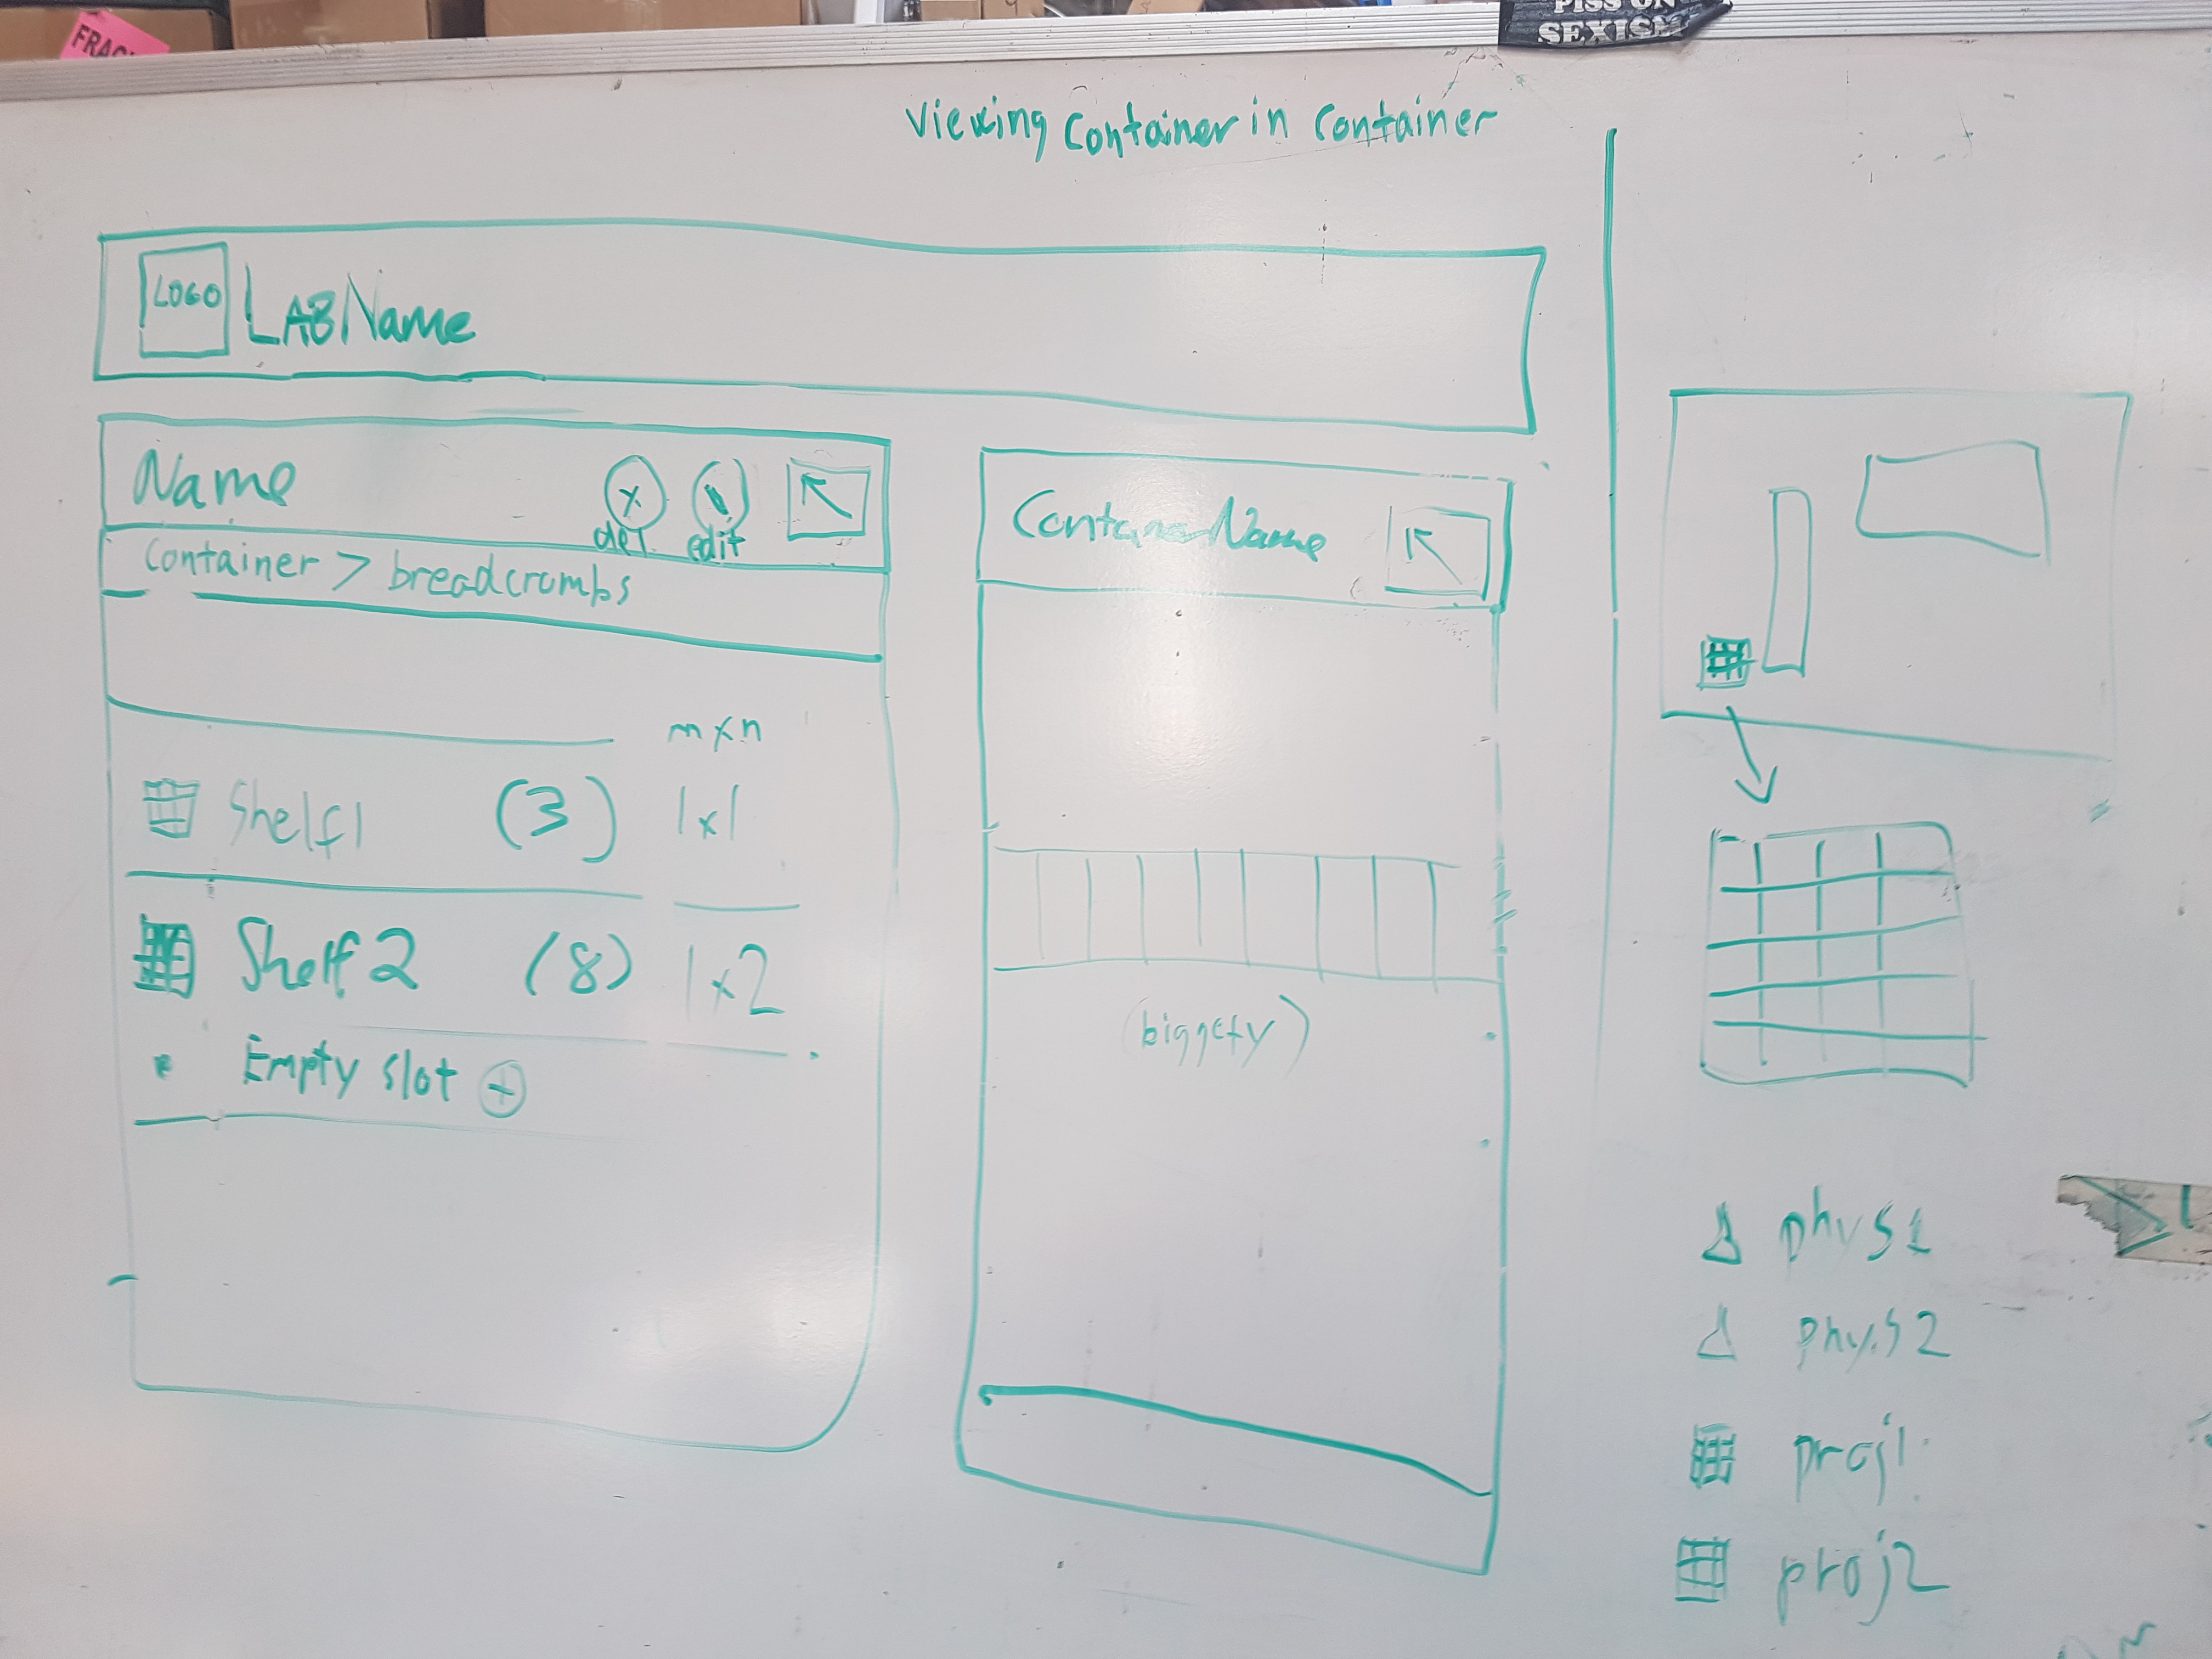 FRAG
PISS ON
SEXISM
Viewing Container in Container
LOGO
LAB Name
Name
x
del.
edit
Container > breadcrombs
Container Name
mxn
Shelf1 (3) 1x1
Shelf 2 (8) 1x2
Empty slot +
(biggety)
phys1
phys2
proj1
proj2